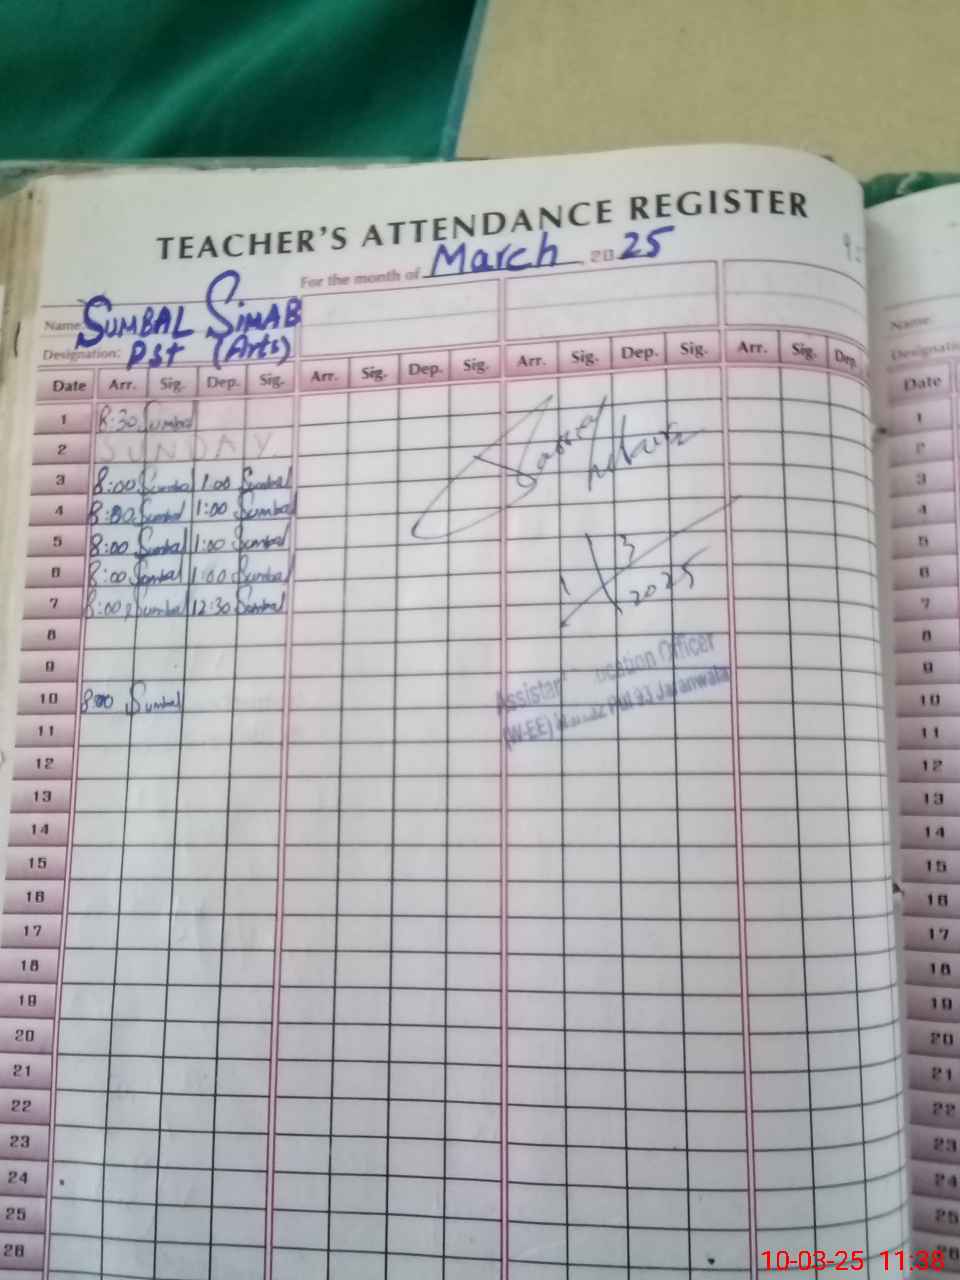 TEACHER'S ATTENDANCE REGISTER
For the month of March, 2025
Name: SUMBAL SIMAB
Designation: PST (Arts)
Date Arr. Sig. Dep. Sig. Arr. Sig. Dep. Sig. Arr. Sig. Dep. Sig. Arr. Sig. Dep.
1 8:30 Sumbal
2 SUNDAY
3 8:00 Sumbal 1:00 Sumbal
4 8:00 Sumbal 1:00 Sumbal
5 8:00 Sumbal 1:00 Sumbal
6 8:00 Sumbal 1:00 Sumbal
7 8:00 Sumbal 12:30 Sumbal
8
9
10 8:00 Sumbal
11
12
13
14
15
16
17
18
19
20
21
22
23
24
25
26
3
2025
Officer
(W-EE) 93 Jaranwala
Name:
Date
1
2
3
4
5
6
7
8
9
10
11
12
13
14
15
16
17
18
19
20
21
22
23
24
25
26
10-03-25 11:38